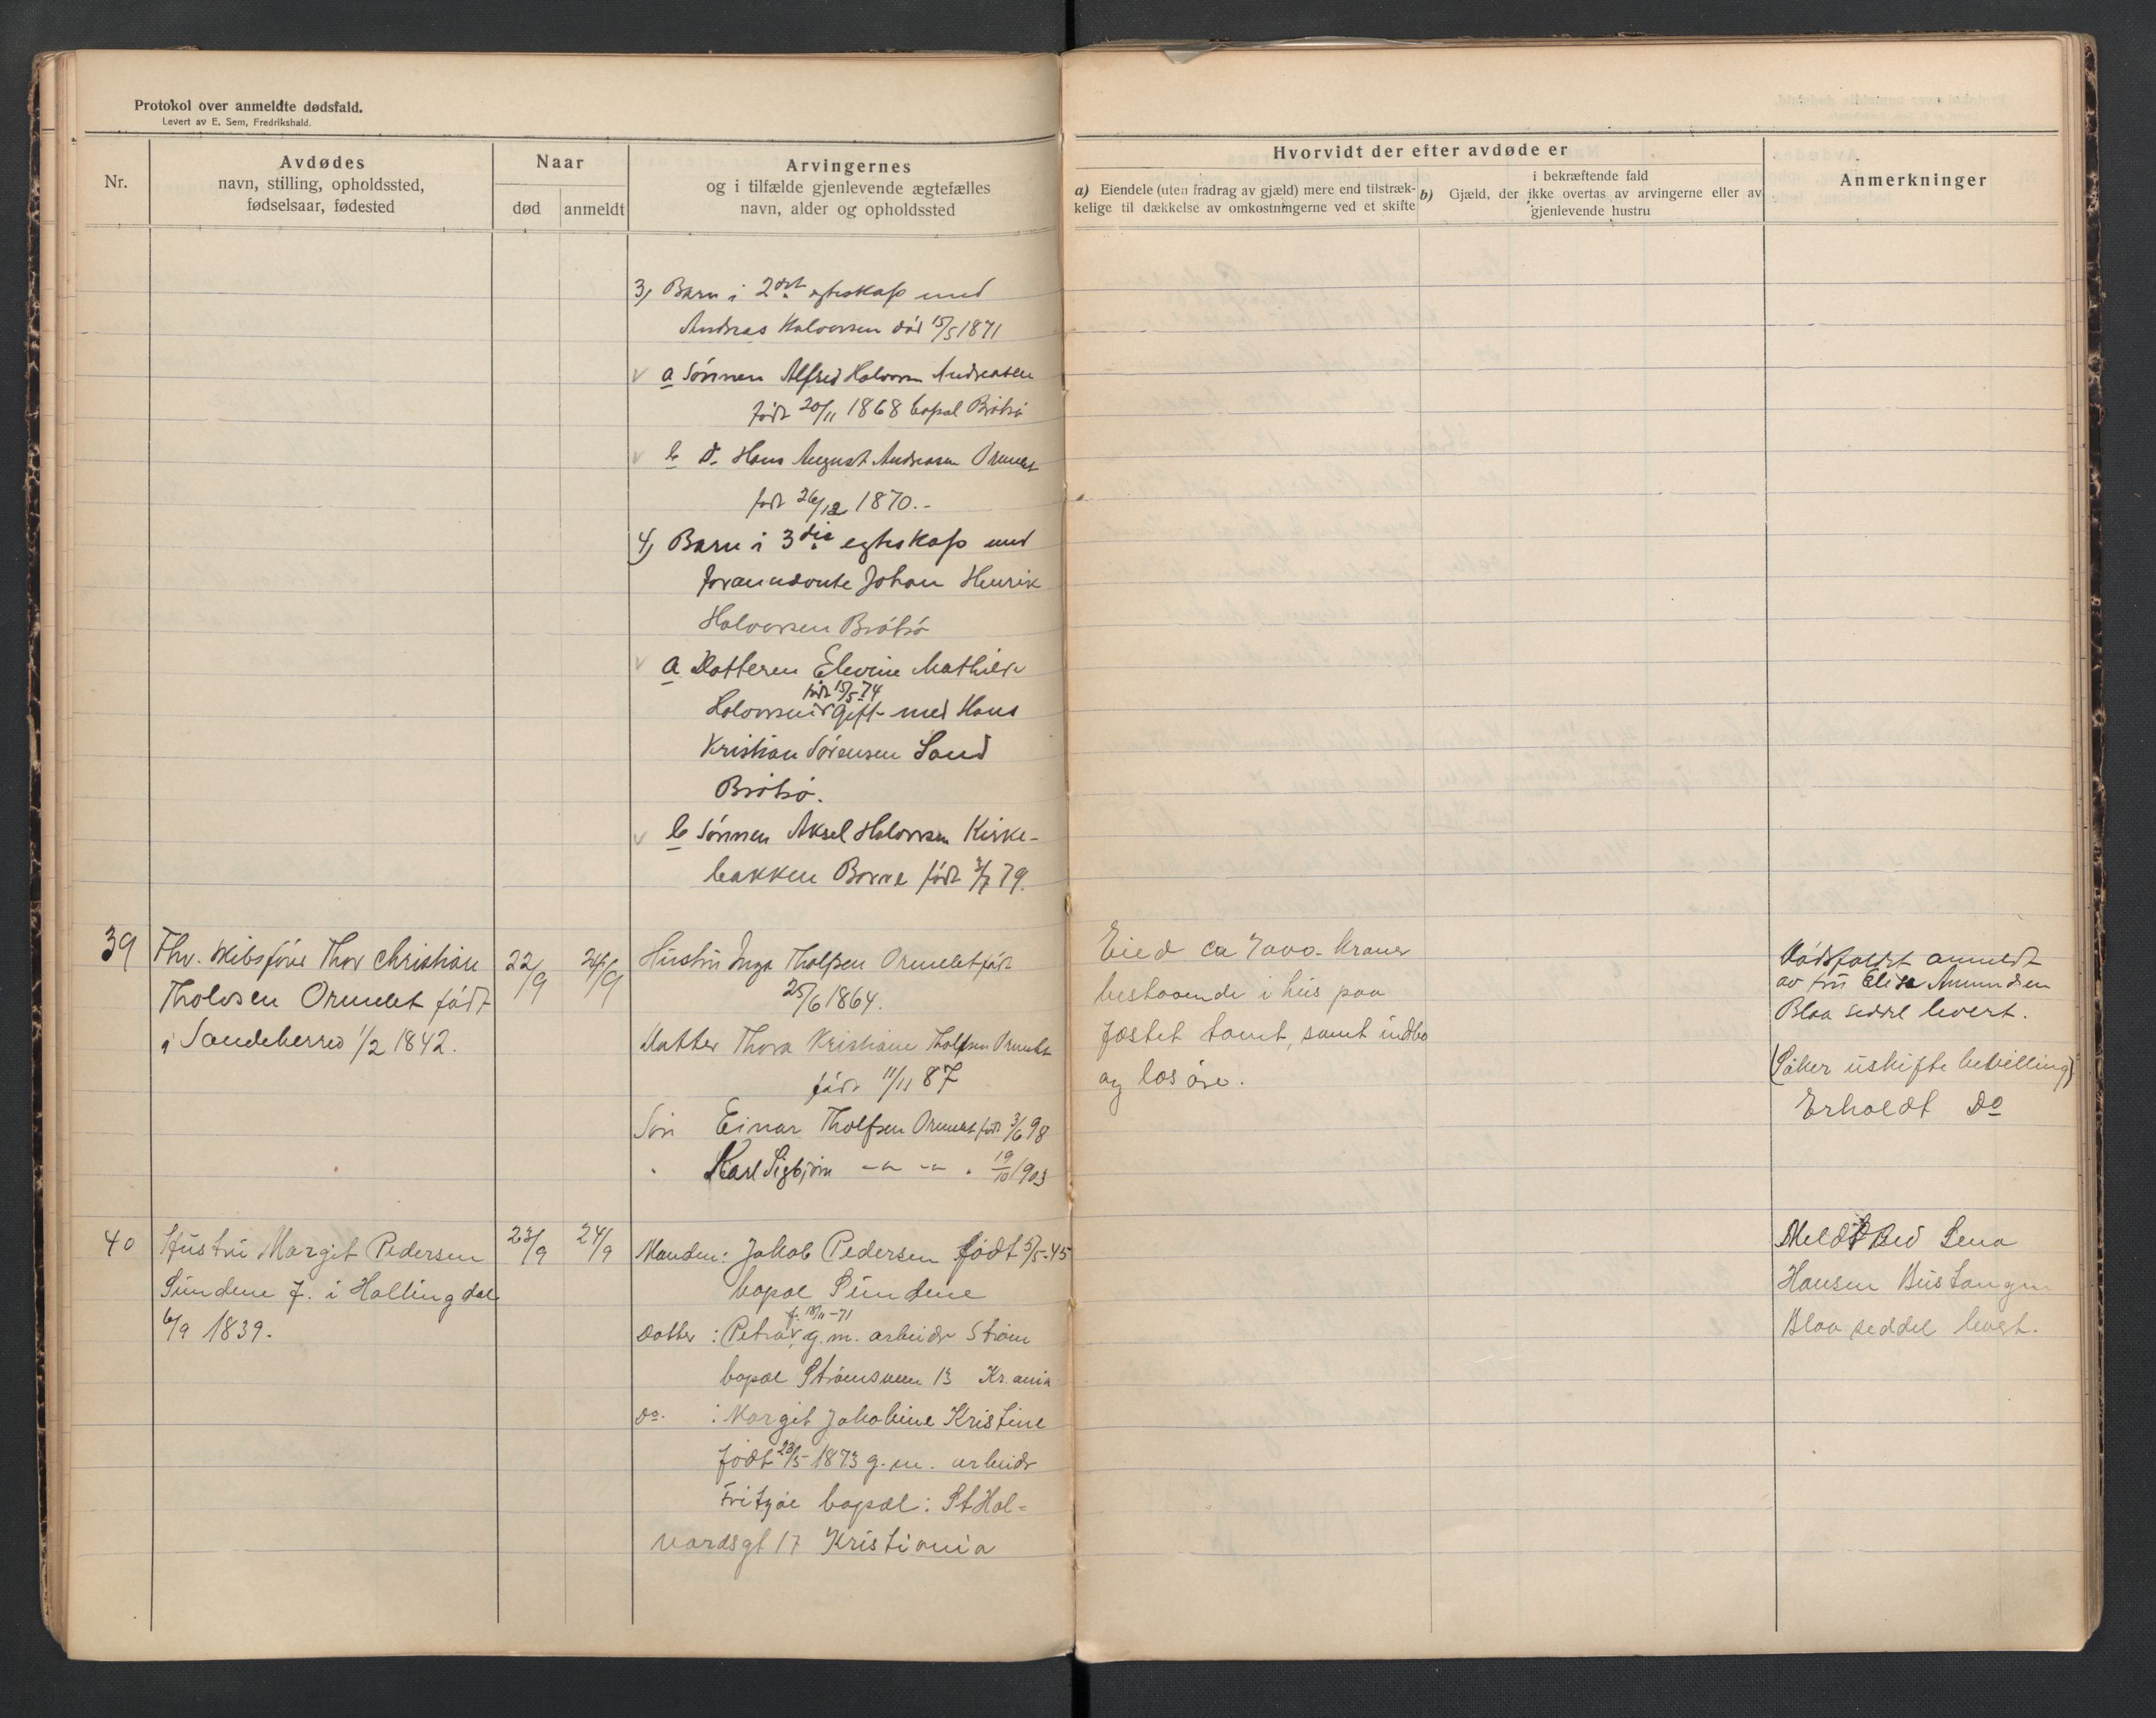 Protokol over anmeldte dødsfald.
Levert av E. Sem, Fredrikshald.
Nr.
Avdødes
navn, stilling, opholdssted,
fødselsaar, fødested
Naar
død
anmeldt
Arvingernes
og i tilfælde gjenlevende ægtefælles
navn, alder og opholdssted
Hvorvidt der efter avdøde er
a) Eiendele (uten fradrag av gjæld) mere end tilstræk-
kelige til dækkelse av omkostningerne ved et skifte
i bekræftende fald
b) Gjæld, der ikke overtas av arvingerne eller av
gjenlevende hustru
Anmerkninger
3) Barn i 2det egteskap med
Andreas Halvorsen død 15/5 1871
a Sönnen Alfred Halvorsen Andreasen
född 20/11 1868 bopæl Brötsö
b Do Hans August Andreasen Ormelet
född 26/12 1870.-
4) Barn i 3die egteskap med
forannævnte Johan Henrik
Halvorsen Brötsö
a Datteren Elevine Mathilde
född 15/5-74
Halvorsen gift med Hans
Kristian Sörensen Sand
Brötsö.
b Sönnen Aksel Halvorsen Kirke-
bakken Borre född 3/7 79.
39
Fhv. skibsförer Thor Christian
Tholvsen Ormelet född
i Sandeherred 1/2 1842.
22/9
24/9
Hustru Inga Tholfsen Ormelet född
25/6 1864.
Datter Thora Kristiane Tholfsen Ormelet
född 11/11 87
Sön Einar Tholfsen Ormelet född 3/6 98
" Karl Sigbjörn -"- -"- " 19/10 1903
Eied ca 7000.- kroner
bestaaende i hus paa
fæstet tomt, samt indbo
og lösöre.
Dödsfaldet anmeldt
av fru Elise Amundsen
Blaa seddel levert.
(Söker uskifte bevilling)
Erholdt Do
40
Hustru Margit Pedersen
Sundene f. i Hallingdal
6/9 1839.
23/9
24/9
Manden: Jakob Pedersen född 5/5-45
bopæl Sundene
f. 18/11-71
Datter : Petra, g.m. arbeider Ström
bopæl Strömsveien 13 Kr.ania
do. : Margit Jakobine Kristine
född 23/5-1873 g.m. arbeider
Fritzöe bopæl: St Hal=
vardsgt 17 Kristiania
Meldt ved Lena
Hansen Bustangen
Blaa seddel levert.